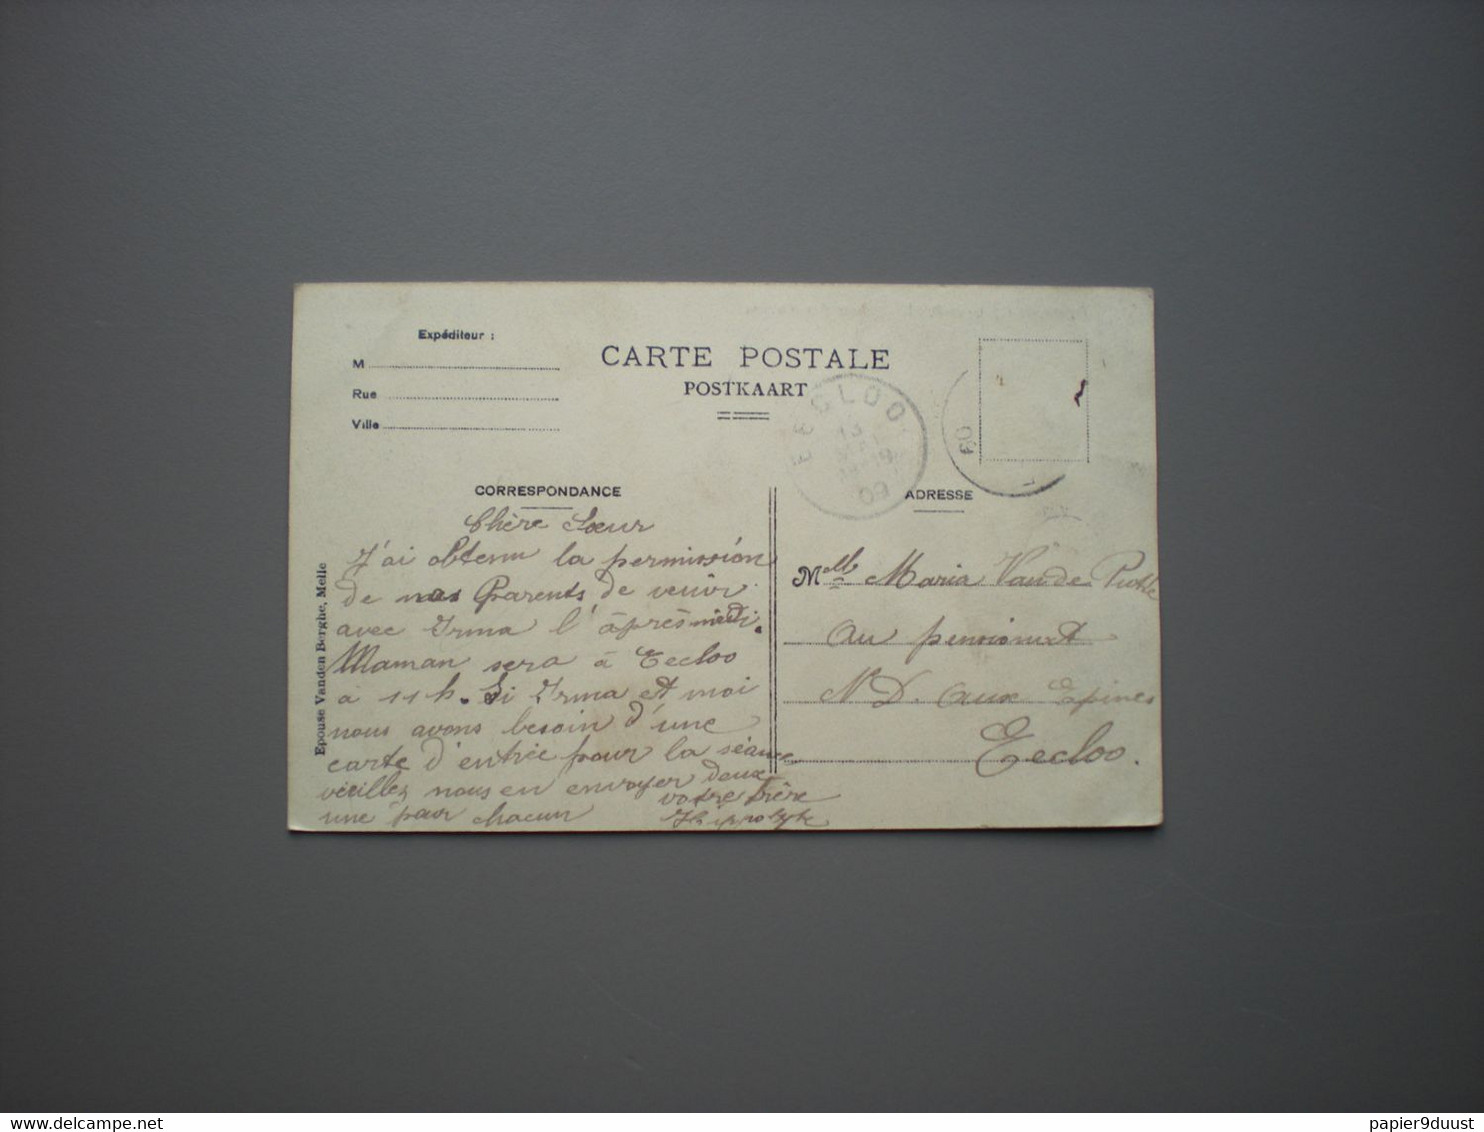 Expéditeur :
M
Rue
Ville
CARTE POSTALE
POSTKAART
EECLOO
13
09
09
CORRESPONDANCE
ADRESSE
Chère Sœur
J'ai obtenu la permission
de nos Parents de venir
avec Irma l'après midi.
Maman sera à Eecloo
à 11 h. Si Irma et moi
nous avons besoin d'une
carte d'entrée pour la séance
veuillez nous en envoyer deux
une pour chacun
votre frère
Hippolyte
Epouse Vanden Berghe, Melle
Melle Maria Van de
au pensionnat
N D. aux Epines
Eecloo.
papier9duust